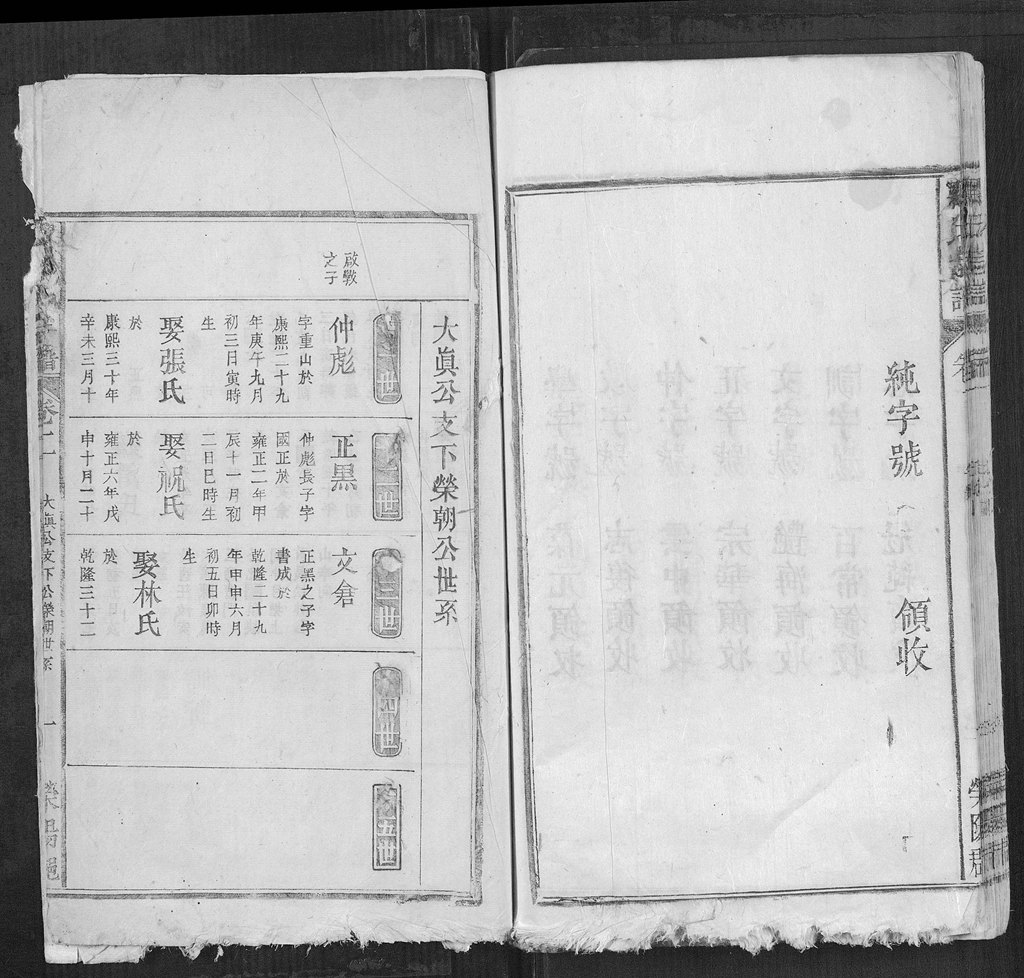 純字號
領收
大眞公支下榮朝公世系
啟戰
之子
一世
仲彪
字重山於
康熙二十九
年庚午九月
初三日寅時
生
娶張氏
於
康熙三十年
辛未三月十
二世
正黑
仲彪長子字
國正於
雍正二年甲
辰十一月初
二日巳時生
娶祝氏
於
雍正六年戊
申十月二十
三世
文倉
正黑之子字
書成於
乾隆二十九
年甲申六月
初五日卯時
生
娶林氏
於
乾隆三十二
四世
五世
卷二
大眞公支下公榮朝世系
一